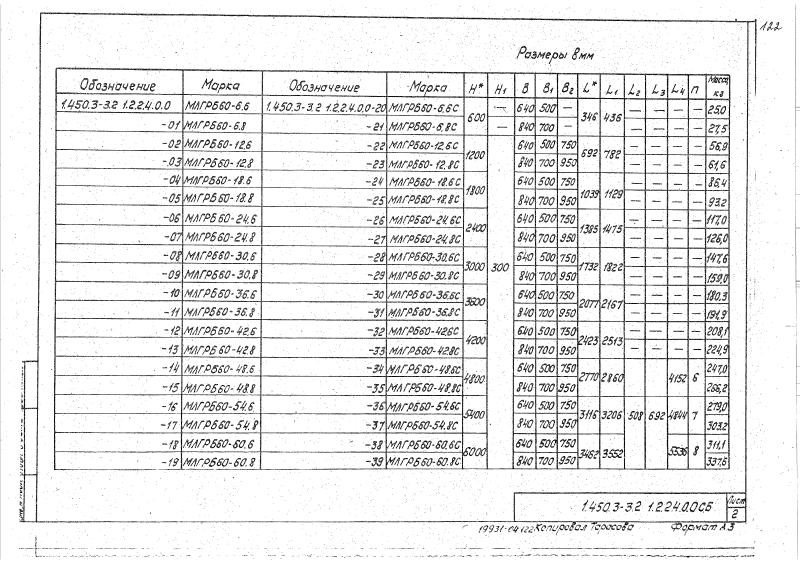 122
Размеры в мм
Обозначение Марка Обозначение Марка H* H1 B B1 B2 L* L1 L2 L3 L4 n Масса, кг
1.450.3-3.2 1.2.2.4.0.0 МЛГРБ60-6.6 1.450.3-3.2 1.2.2.4.0.0-20 МЛГРБ60-6.6С 600 — 640 500 — 346 436 — — — — 25,0
-01 МЛГРБ60-6.8 -21 МЛГРБ60-6.8С — 840 700 — — — — — 27,5
-02 МЛГРБ60-12.6 -22 МЛГРБ60-12.6С 1200 300 640 500 750 692 782 — — — — 56,9
-03 МЛГРБ60-12.8 -23 МЛГРБ60-12.8С 840 700 950 — — — — 61,6
-04 МЛГРБ60-18.6 -24 МЛГРБ60-18.6С 1800 640 500 750 1039 1129 — — — — 86,4
-05 МЛГРБ60-18.8 -25 МЛГРБ60-18.8С 840 700 950 — — — — 93,2
-06 МЛГРБ60-24.6 -26 МЛГРБ60-24.6С 2400 640 500 750 1385 1475 — — — — 117,0
-07 МЛГРБ60-24.8 -27 МЛГРБ60-24.8С 840 700 950 — — — — 126,0
-08 МЛГРБ60-30.6 -28 МЛГРБ60-30.6С 3000 640 500 750 1732 1822 — — — — 147,6
-09 МЛГРБ60-30.8 -29 МЛГРБ60-30.8С 840 700 950 — — — — 159,0
-10 МЛГРБ60-36.6 -30 МЛГРБ60-36.6С 3600 640 500 750 2077 2167 — — — — 180,3
-11 МЛГРБ60-36.8 -31 МЛГРБ60-36.8С 840 700 950 — — — — 191,9
-12 МЛГРБ60-42.6 -32 МЛГРБ60-42.6С 4200 640 500 750 2423 2513 — — — — 208,1
-13 МЛГРБ60-42.8 -33 МЛГРБ60-42.8С 840 700 950 — — — — 224,9
-14 МЛГРБ60-48.6 -34 МЛГРБ60-48.6С 4800 640 500 750 2770 2860 508 692 4152 6 247,0
-15 МЛГРБ60-48.8 -35 МЛГРБ60-48.8С 840 700 950 266,2
-16 МЛГРБ60-54.6 -36 МЛГРБ60-54.6С 5400 640 500 750 3116 3206 4844 7 279,0
-17 МЛГРБ60-54.8 -37 МЛГРБ60-54.8С 840 700 950 303,2
-18 МЛГРБ60-60.6 -38 МЛГРБ60-60.6С 6000 640 500 750 3462 3552 5536 8 311,1
-19 МЛГРБ60-60.8 -39 МЛГРБ60-60.8С 840 700 950 337,6
1.450.3-3.2 1.2.2.4.0.0СБ
Лист
2
19931-04 122 Копировал Тарасова Формат А3